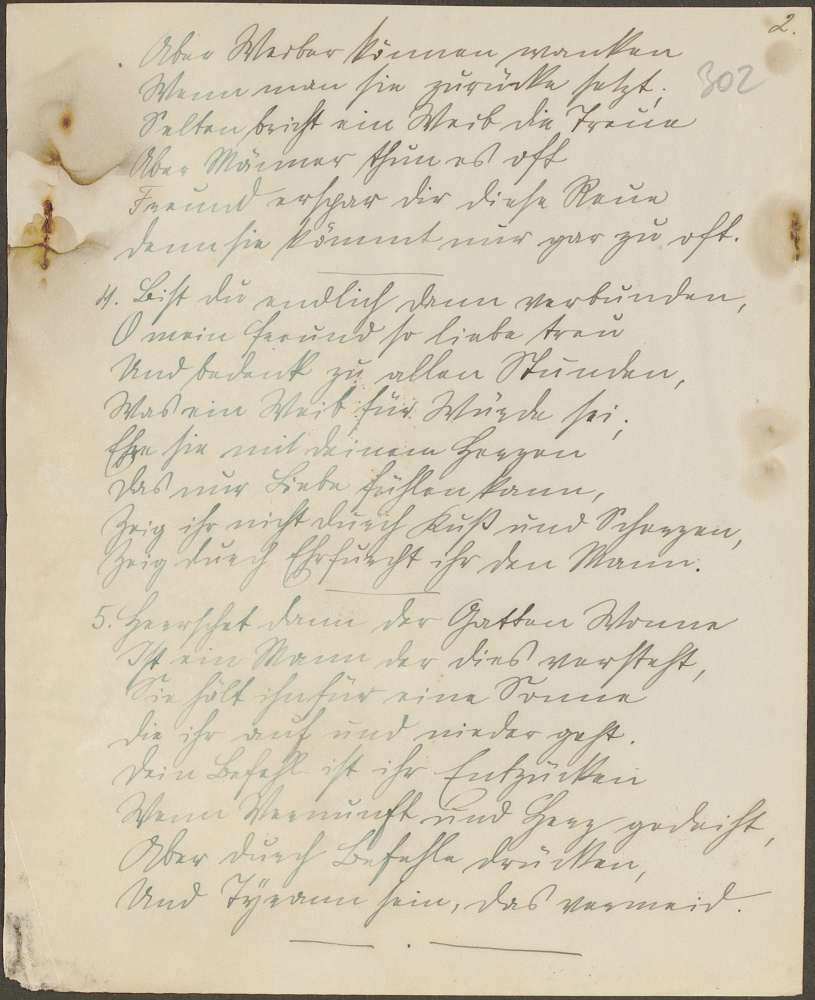 2.
302
Aber Weiber können wanken
Wenn man sie zurücke setzt;
Selten bricht ein Weib die Treue
Aber Männer thun es oft
Freund erspar dir diese Reue
denn sie kömmt nur gar zu oft.
4. Bist du endlich dann verbunden,
O mein Freund so liebe treu
Und bedenk zu allen Stunden,
Was ein Weib für Würde sei;
Ehre sie mit deinem Herzen
Das nur Liebe fühlen kann,
Zeig ihr nicht durch Kuß und Scherzen,
Zeig durch Ehrfurcht ihr den Mann.
5. Herrschet dann der Gatten Wonne
Ist ein Mann der dies versteht,
Sie hält ihn für eine Sonne
die ihr auf und nieder geht.
Dein Befehl ist ihr Entzücken
Wenn Vernunft und Herz gedeiht,
Aber durch Befehle drücken,
Und Tÿrann sein, das vermeid.